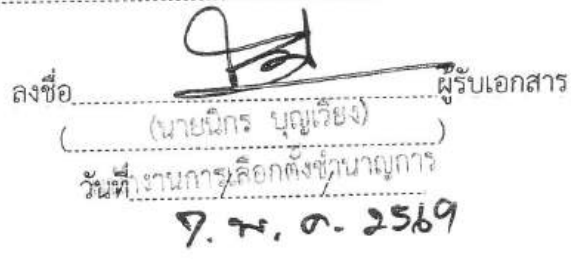 ลงชื่อ ผู้รับเอกสาร
(นายนิกร บุญเวียง)
วันที่ งานการเลือกตั้งชำนาญการ
7. พ. ค. 2569